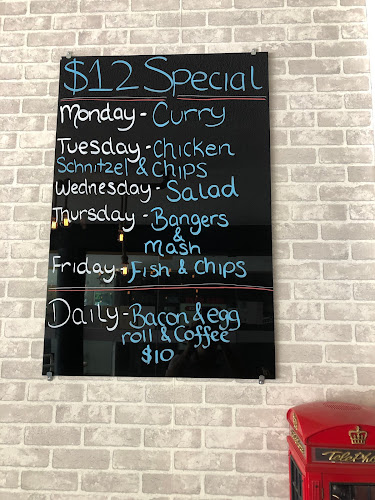 $12 Special
Monday - Curry
Tuesday - Chicken
Schnitzel & Chips
Wednesday - Salad
Thursday - Bangers
&
Mash
Friday - Fish & chips
Daily - Bacon & egg
roll & Coffee
$10